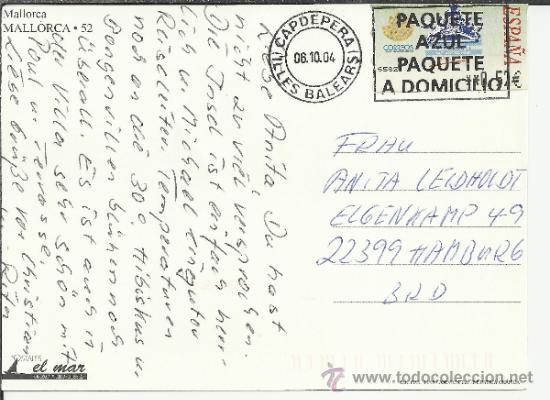 Mallorca
MALLORCA • 52
Liebe Anita, Du hast
nicht zu viel versprochen.
Die Insel ist einfach herr
lich u. Michael ein guter
Reiseleiter. Temperaturen
noch an die 30°. Hibiskus u.
blühen noch
überall. Es ist auch in
der Villa sehr schön mit
Pool u. Terrasse.
Liebe Grüße von Christian
u. Rita
CAPDEPERA
06.10.04
ILLES BALEARS
PAQUETE
AZUL
PAQUETE
A DOMICILIO
CORREOS
ESPAÑA
0,52€
FRAU
ANITA LEIDHOLDT
ELGENKAMP 49
22399 HAMBURG
BRD
POSTALES
el mar
www.todocoleccion.net